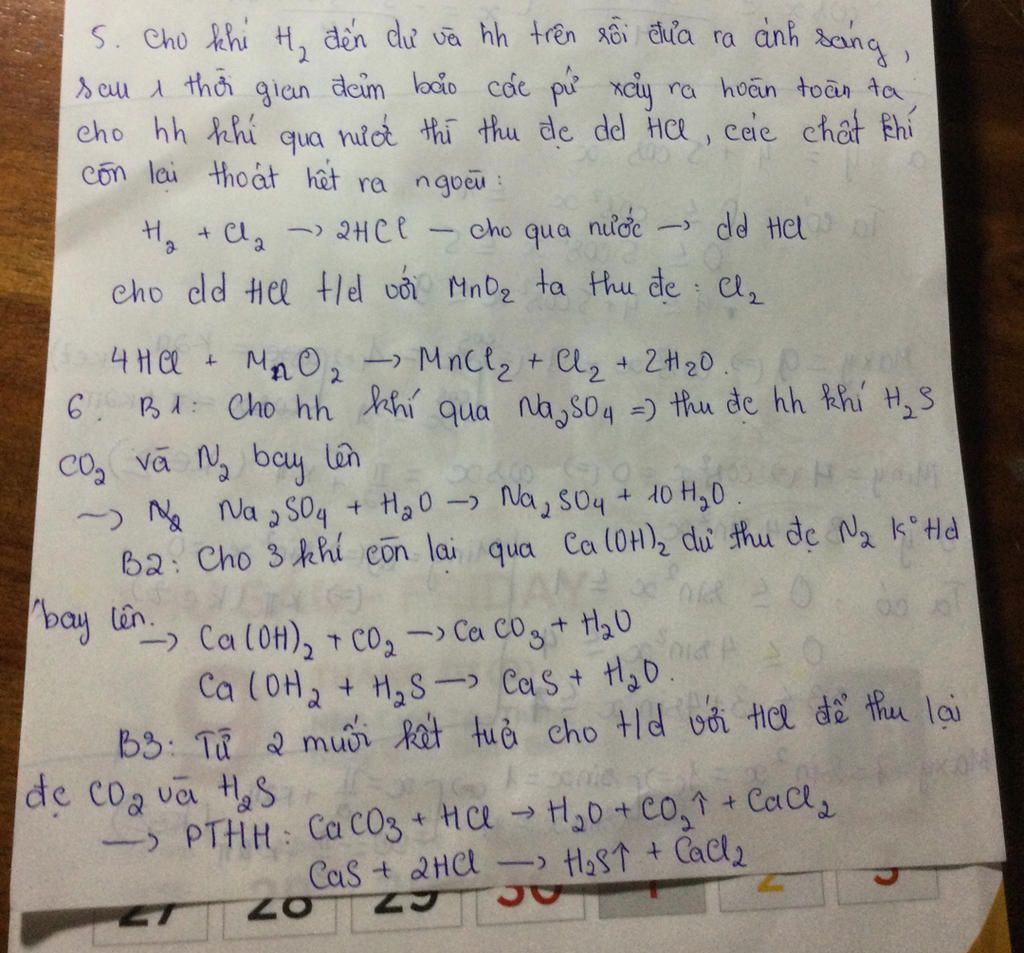 5. Cho khí H₂ đến dư và hh trên rồi đưa ra ánh sáng,
sau 1 thời gian đảm bảo các pứ xảy ra hoàn toàn ta
cho hh khí qua nước thì thu đc dd HCl, các chất khí
còn lại thoát hết ra ngoài:
H₂ + Cl₂ → 2HCl – cho qua nước → dd HCl
cho dd HCl t/d với MnO₂ ta thu đc: Cl₂
4HCl + MnO₂ → MnCl₂ + Cl₂ + 2H₂O.
6. B1: Cho hh khí qua Na₂SO₄ => thu đc hh khí H₂S
CO₂ và N₂ bay lên
→ Na₂SO₄ + H₂O → Na₂SO₄ + 10H₂O.
B2: Cho 3 khí còn lại qua Ca(OH)₂ dư thu đc N₂ k° t/d
bay lên.
→ Ca(OH)₂ + CO₂ → CaCO₃ + H₂O
Ca(OH₂ + H₂S → CaS + H₂O.
B3: Từ 2 muối kết tuả cho t/d với HCl để thu lại
đc CO₂ và H₂S
→ PTHH: CaCO₃ + HCl → H₂O + CO₂↑ + CaCl₂
CaS + 2HCl → H₂S↑ + CaCl₂
27 28 29 30 1 2 3